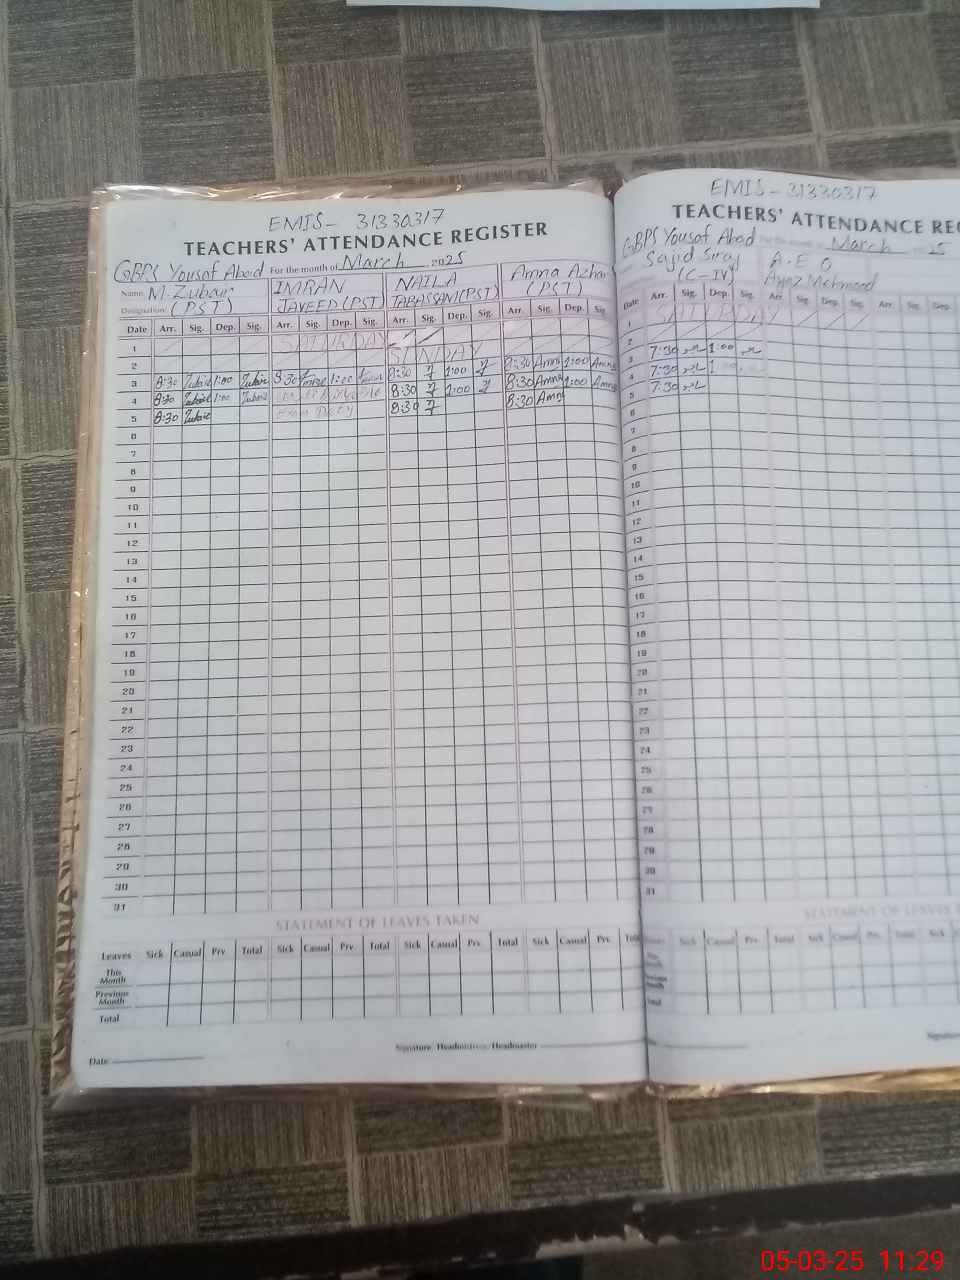 EMIS- 31330317
TEACHERS' ATTENDANCE REGISTER
GBPS Yousaf Abad For the month of March 2025
Name M. Zubair IMRAN NAILA Amna Azhar
Designation (PST) JAVEED (PST) TABASSAM (PST) (PST)
Date Arr. Sig. Dep. Sig. Arr. Sig. Dep. Sig. Arr. Sig. Dep. Sig. Arr. Sig. Dep. Sig.
1 SATURDAY
2 SUNDAY
3 8:30 Zubair 1:00 Zubair 8:30 1:00 8:30 1:00 8:30 Amna 1:00 Amna
4 8:30 Zubair 1:00 Zubair 8:30 1:00 8:30 Amna 1:00 Amna
5 8:30 Zubair From Duty 8:30 8:30 Amna
6
7
8
9
10
11
12
13
14
15
16
17
18
19
20
21
22
23
24
25
26
27
28
29
30
31
STATEMENT OF LEAVES TAKEN
Leaves Sick Casual Prv. Total Sick Casual Prv. Total Sick Casual Prv. Total Sick Casual Prv.
This Month
Previous Month
Total
Date Signature Headmistress/Headmaster
EMIS- 31330317
TEACHERS' ATTENDANCE REG
GBPS Yousaf Abad For the month of March 2025
Sajid Siraj A.E O
(C-IV) Ayaz Mehmood
Date Arr. Sig. Dep. Sig. Arr. Sig. Dep. Sig. Arr. Sig. Dep.
1 SATURDAY
2
3 7:30 1:00
4 7:30 1:00
5 7:30
6
7
8
9
10
11
12
13
14
15
16
17
18
19
20
21
22
23
24
25
26
27
28
29
30
31
STATEMENT OF LEAVES
Sick Casual Prv. Total Sick Casual Prv. Total Sick
Total
05-03-25 11:29